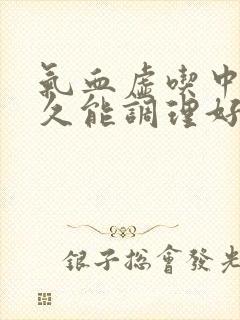 氣血虛喫中
久能調理好
銀子總會發光